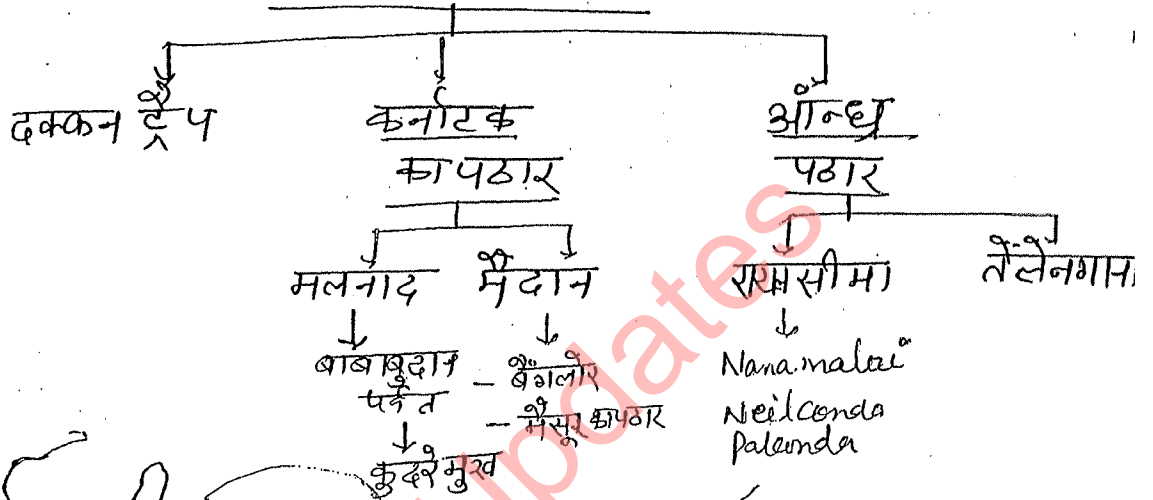 दक्कन ट्रैप
कर्नाटक
का पठार
आन्ध्र
पठार
मलनाद
मैदान
रायलसीमा
तेलेनगाना
बाबाबुदान
पर्वत
कुदरेमुख
- बैंगलोर
- मैसूर का पठार
Nanamalai
Neilconda
Palconda
updates